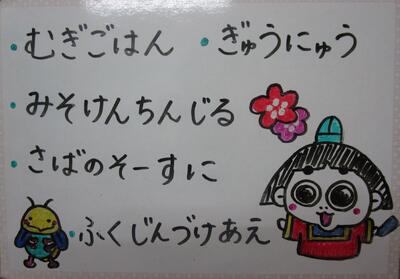 ・むぎごはん ・ぎゅうにゅう
・みそけんちんじる
・さばのそーすに
・ふくじんづけあえ